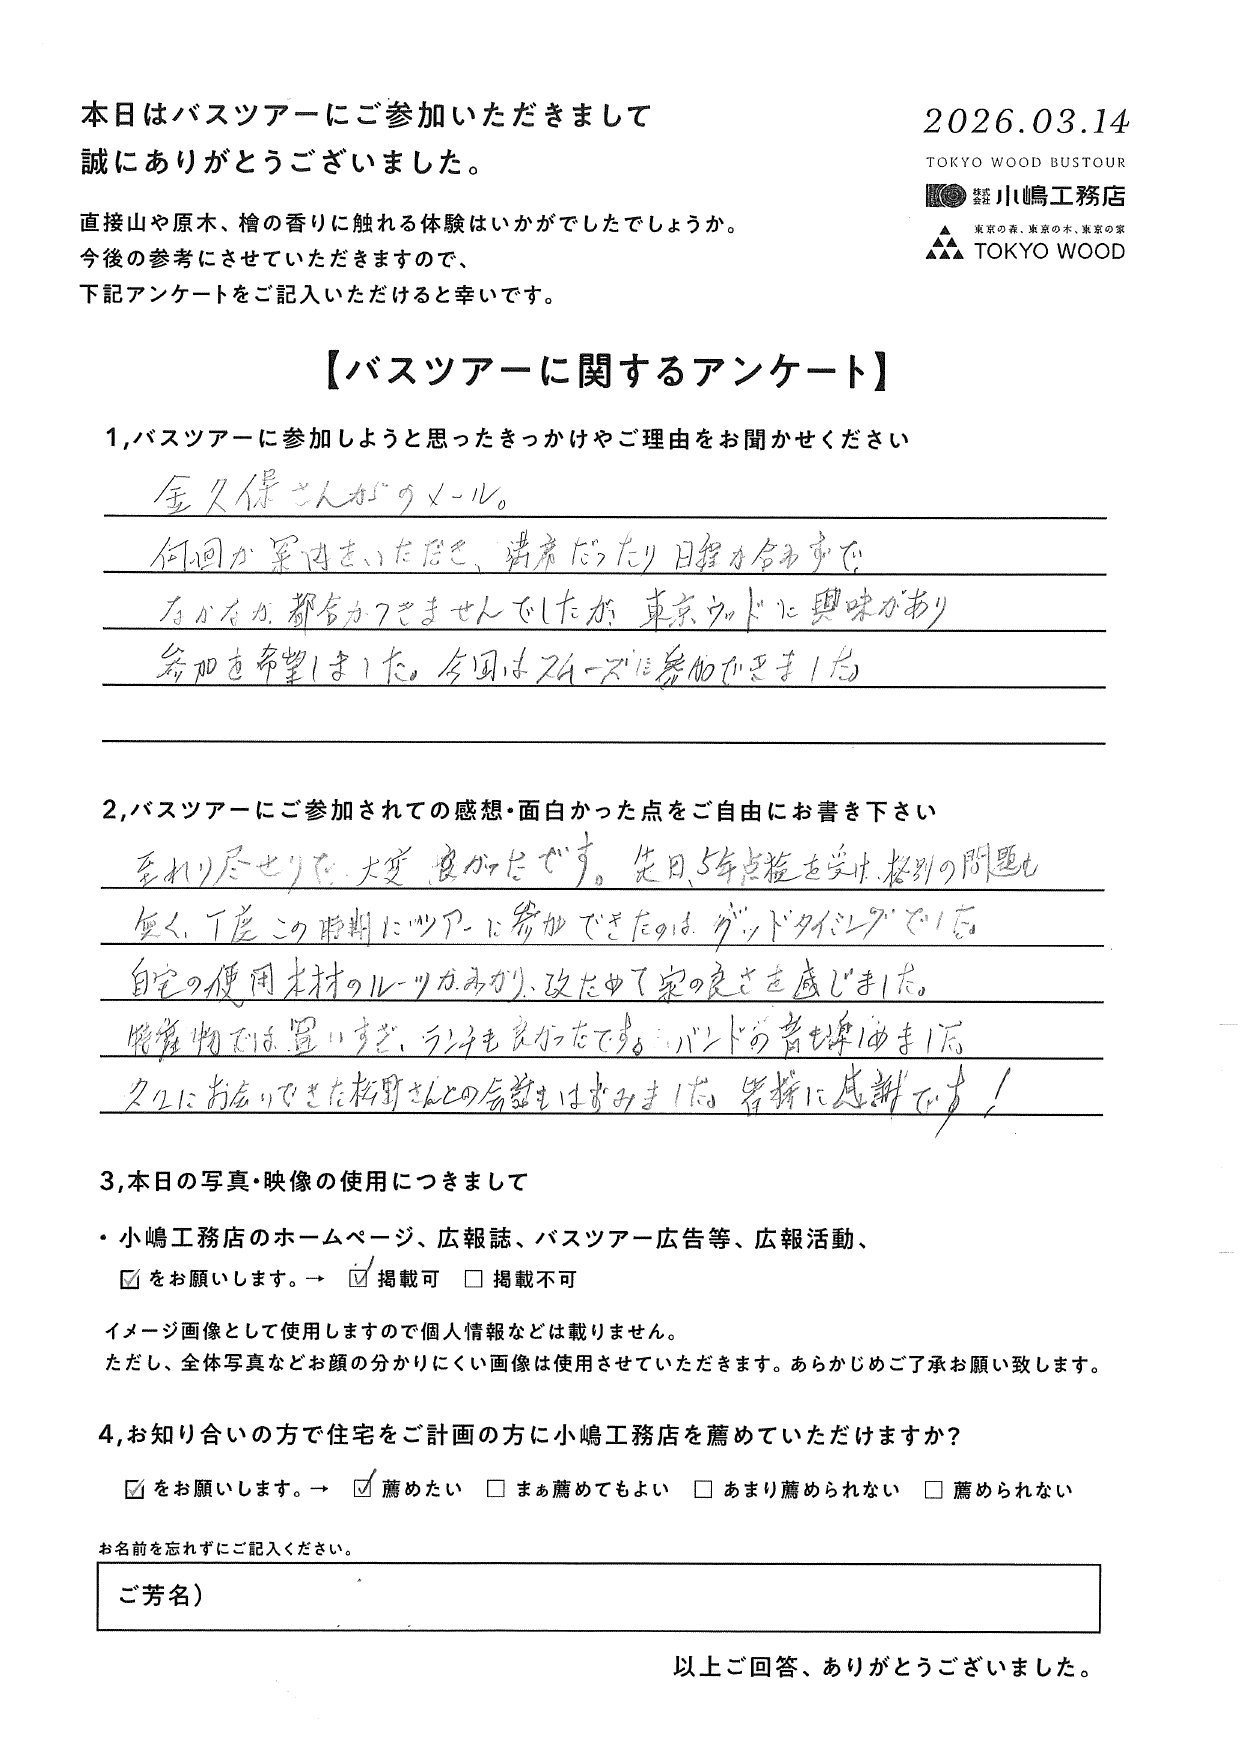 本日はバスツアーにご参加いただきまして
誠にありがとうございました。
2026.03.14
TOKYO WOOD BUSTOUR
株式会社 小嶋工務店
東京の森、東京の木、東京の家
TOKYO WOOD
直接山や原木、檜の香りに触れる体験はいかがでしたでしょうか。
今後の参考にさせていただきますので、
下記アンケートをご記入いただけると幸いです。
【バスツアーに関するアンケート】
1,バスツアーに参加しようと思ったきっかけやご理由をお聞かせください
金久保さんからのメール。
何回か案内をいただき、満席だったり日程が合わずで
なかなか都合がつきませんでしたが、東京ウッドに興味があり
参加を希望しました。今回はスムーズに参加できました。
2,バスツアーにご参加されての感想・面白かった点をご自由にお書き下さい
至れり尽せりで、大変良かったです。先日、5年点検を受け、格別の問題も
無く、丁度この時期にツアーに参加できたのはグッドタイミングでした。
自宅の使用木材のルーツがわかり、改ためて家の良さを感じました。
特産物では買いすぎ、ランチも良かったです。バンドの音も楽しめました。
久々にお会いできた松野さんとの会話もはずみました。皆様に感謝です!
3,本日の写真・映像の使用につきまして
・小嶋工務店のホームページ、広報誌、バスツアー広告等、広報活動、
☑をお願いします。→ ☑掲載可 □掲載不可
イメージ画像として使用しますので個人情報などは載りません。
ただし、全体写真などお顔の分かりにくい画像は使用させていただきます。あらかじめご了承お願い致します。
4,お知り合いの方で住宅をご計画の方に小嶋工務店を薦めていただけますか?
☑をお願いします。→ ☑薦めたい □まぁ薦めてもよい □あまり薦められない □薦められない
お名前を忘れずにご記入ください。
ご芳名)
以上ご回答、ありがとうございました。